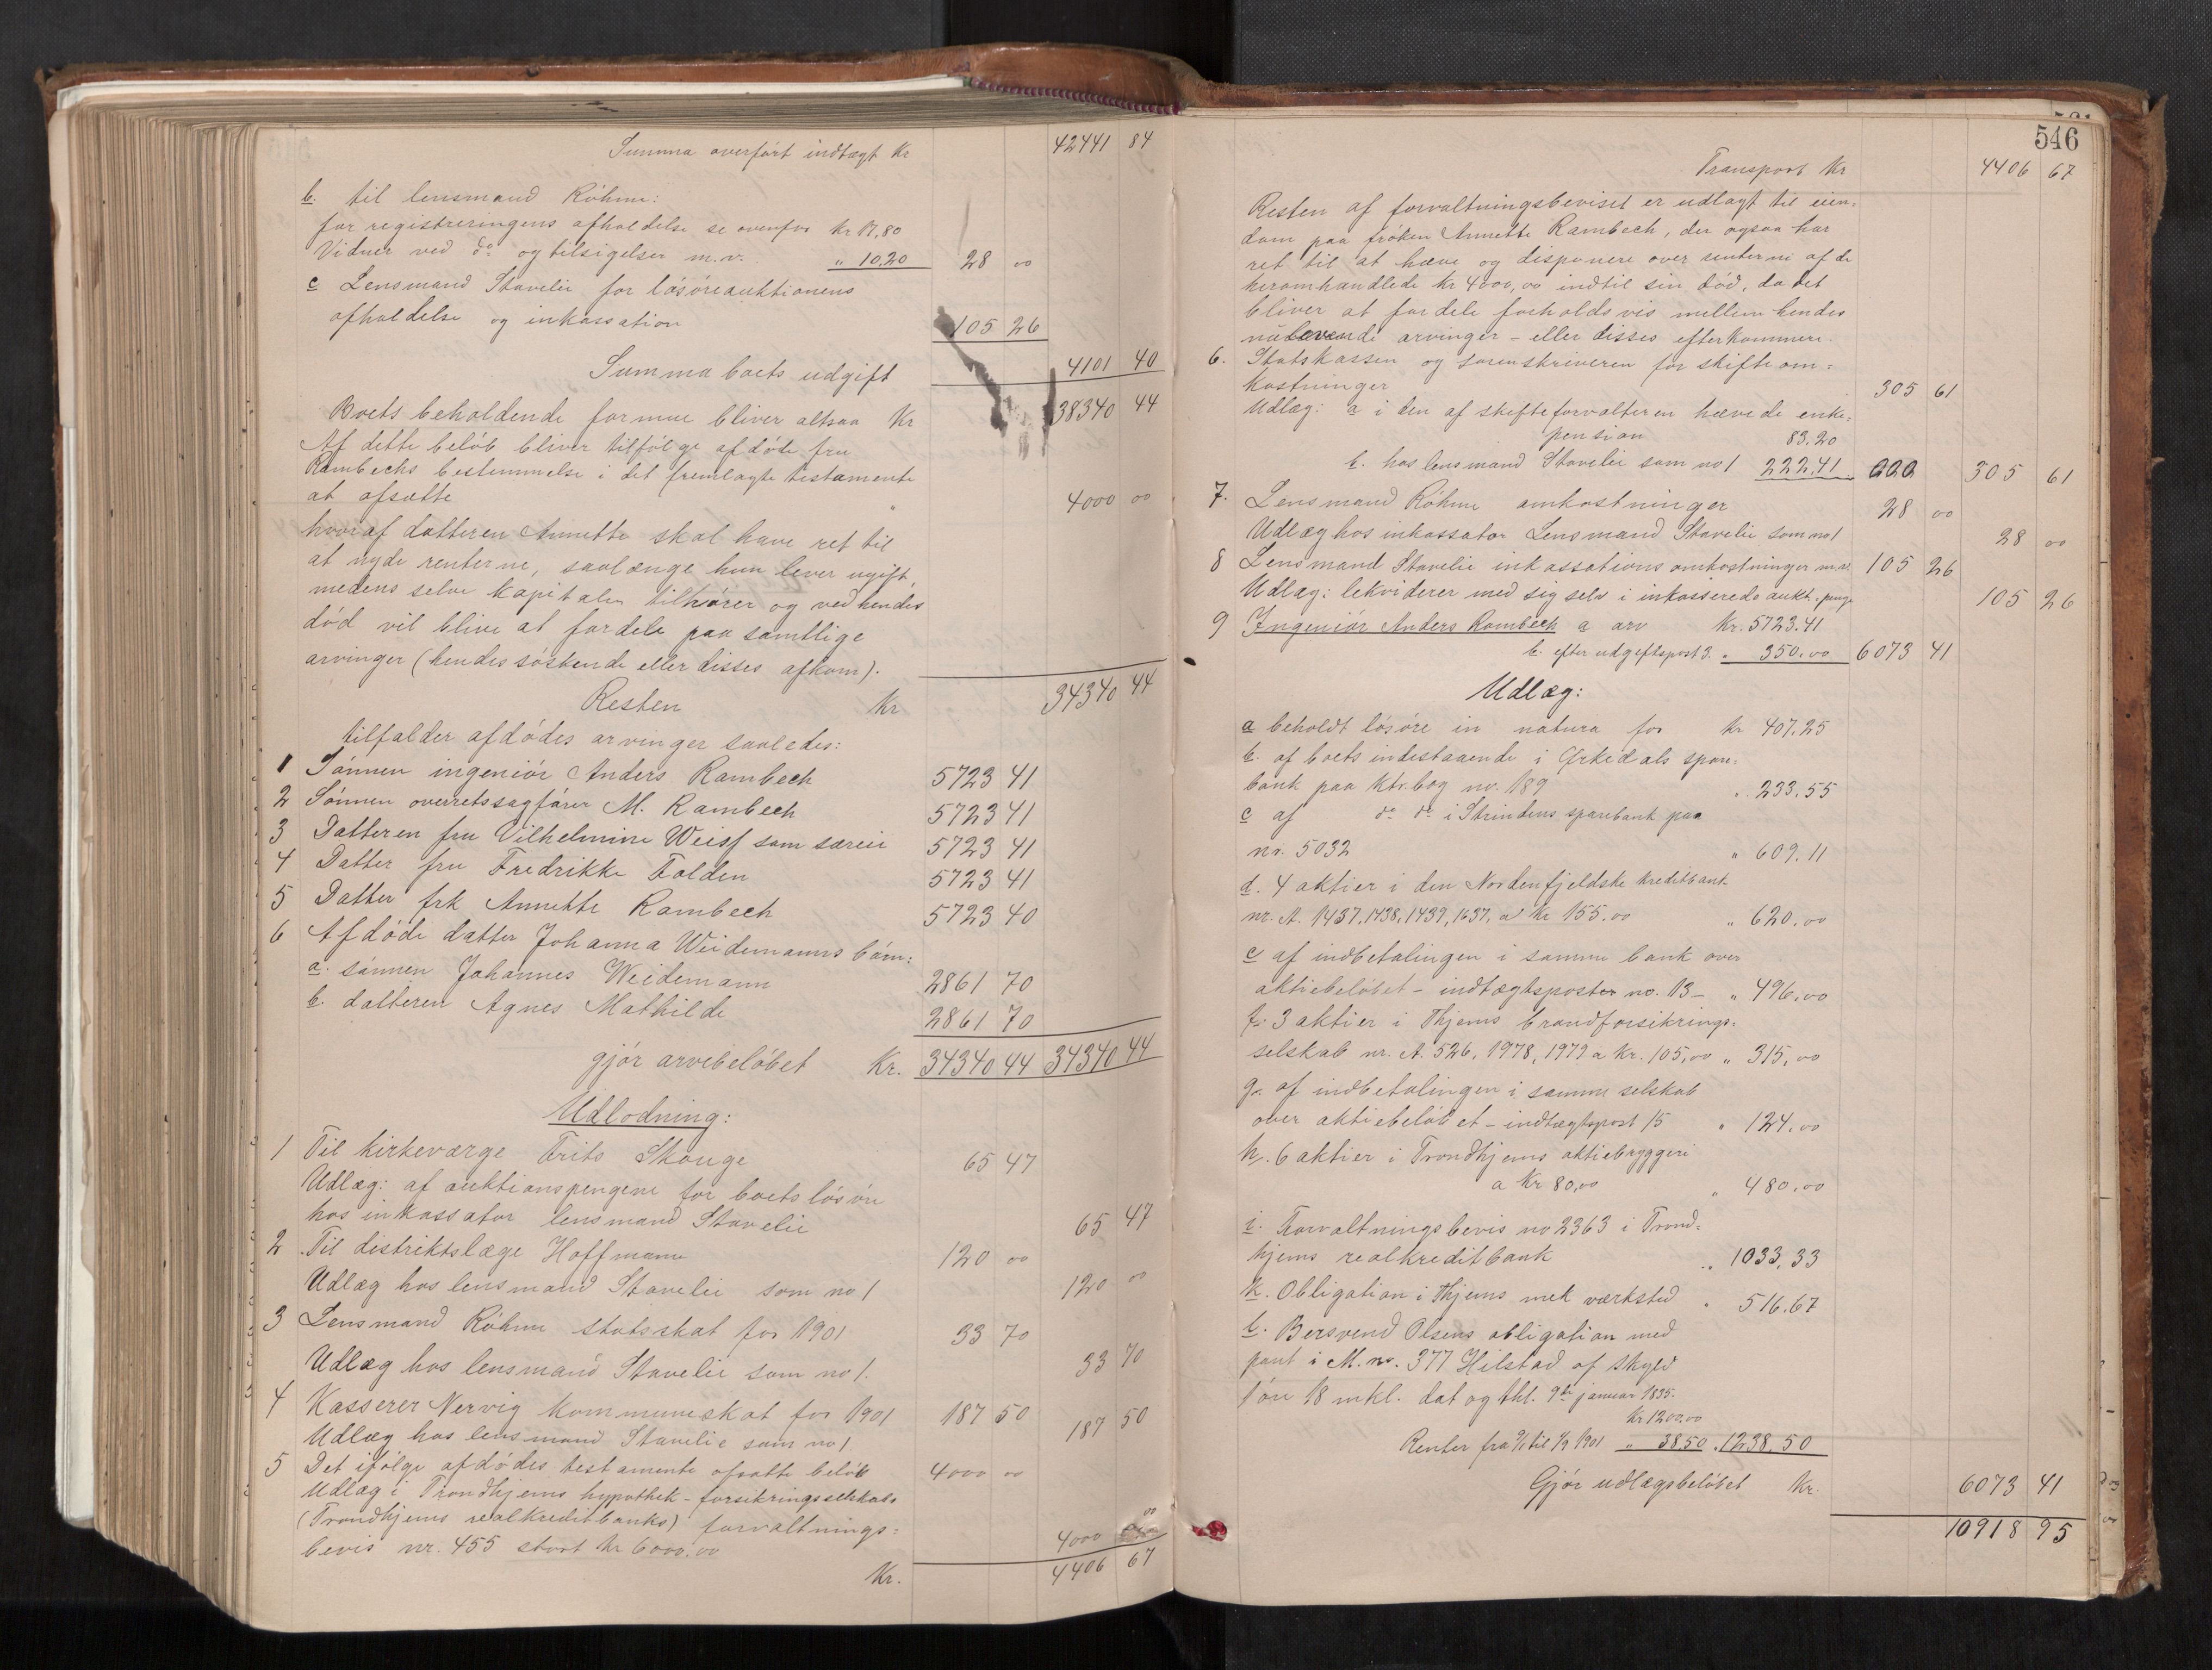 Summa overført indtægt Kr 42441 84
b. til lensmand Röhme:
for registreringens afholdelse se ovenfor Kr 17,80
Vidner ved do og tilsigelser m.v. " 10.20 28 00
c Lensmand Stavelie for løsøreauktionens
afholdelse og inkassation 105 26
Summa boets udgift 4101 40
Boets beholdende formue bliver altsaa Kr 38340 44
Af dette beløb bliver tilfølge afdøde fru
Rambechs bestemmelse i det fremlagte testamente
at afsætte " 4000 00
hvoraf datteren Annette skal have ret til
at nyde renterne, saalænge hun lever ugift,
medens selve kapitalen tilhører og ved hendes
død vil blive at fordele paa samtlige
arvinger (hendes søskende eller disses afkom).
Resten Kr 34340 44
tilfalder afdødes arvinger saaledes:
1 Sønnen ingeniør Anders Rambech 5723 41
2 Sønnen overretssagfører M. Rambech 5723 41
3 Datteren fru Vilhelmine Weisf som særeie 5723 41
4 Datter fru Fredrikke Folden 5723 41
5 Datter frk Annette Rambech 5723 40
6 Afdøde datter Johanna Weidemanns børn:
a. sønnen Johannes Weidemann 2861 70
b. datteren Agnes Mathilde 2861 70
gjør arvebeløbet Kr. 34340 44 34340 44
Udlodning:
1 Til kirkeværge Frits Skauge 65 47
Udlæg: af auktionspengene for boets løsøre
hos inkassator lensmand Stavelie 65 47
2 Til distriktslæge Hoffmann 120 00
Udlæg hos lensmand Stavelie som no 1 120 00
3 Lensmand Röhme statsskat for 1901 33 70
Udlæg hos lensmand Stavelie som no 1. 33 70
4 Kasserer Nervig kommuneskat for 1901 187 50
Udlæg hos lensmand Stavelie som no 1 187 50
5 Det ifølge afdødes testamente afsatte beløb 4000 00
Udlæg i Trondhjems hypothek-forsikringsselskabs
(Trondhjems realkreditbanks) forvaltnings=
bevis nr. 455 stort Kr 6000.00 4000 00
Kr. 4406 67
546
Transport Kr 4406 67
Resten af forvaltningsbeviset er udlagt til eien-
dom paa frøken Annette Rambech, der ogsaa har
ret til at hæve og disponere over renterne af de
heromhandlede Kr 4000,00 indtil sin død, da det
bliver at fordele forholdsvis mellem hendes
nulevende arvinger - eller disses efterkommere.
6. Statskassen og sorenskriveren for skifteom=
kostninger 305 61
Udlæg: a i den af skifteforvalteren hævede enke=
pension 83.20
b. hos lensmand Stavelie som no 1 222.41 305 61
7. Lensmand Röhme omkostninger 28 00
Udlæg hos inkassator Lensmand Stavelie som no 1 28 00
8 Lensmand Stavelie inkassations omkostninger m.v. 105 26
Udlæg: lekviderer med sig selv i inkasserede aukt. penge 105 26
9 Ingeniør Anders Rambech a arv Kr. 5723.41
b. efter udgeftspost 3. " 350.00 6073 41
Udlæg:
a beholdt løsøre in natura for Kr 407.25
b. af boets indestaaende i Ørkedals spare-
bank paa ktr.bog no. 189 " 233.55
c af do do i Strindens sparebank paa
nr. 5032 " 609.11
d. 4 aktier i den Nordenfjeldske Kreditbank
nr. A. 1437, 1438, 1439, 1637, a Kr 155.00 " 620.00
e af indbetalingen i samme bank over
aktiebeløbet - indtægtsposten no. 13 - " 496.00
f. 3 aktier i Thjems brandforsikrings-
selskab nr. A. 526, 1978, 1979 a Kr. 105,00 " 315,00
g. af indbetalingen i samme selskab
over aktiebeløbet - indtægtspost 15 " 124.00
h. 6 aktier i Trondhjems aktiebryggeri
a Kr 80,00 " 480.00
i. Forvaltningsbevis no 2363 i Trond-
hjems realkreditbank " 1033,33
k. Obligation i Thjems mek værksted " 516.67
l. Bersvend Olsens obligation med
pant i M. no. 377 Hilstad af skyld
1 øre 18 mkl. dat og thl. 9de januar 1835.
Kr 1200.00
Renter fra 9/1 til 1/9 1901 " 38.50 " 1238.50
Gjør udlægsbeløbet Kr. 6073 41
10918 95